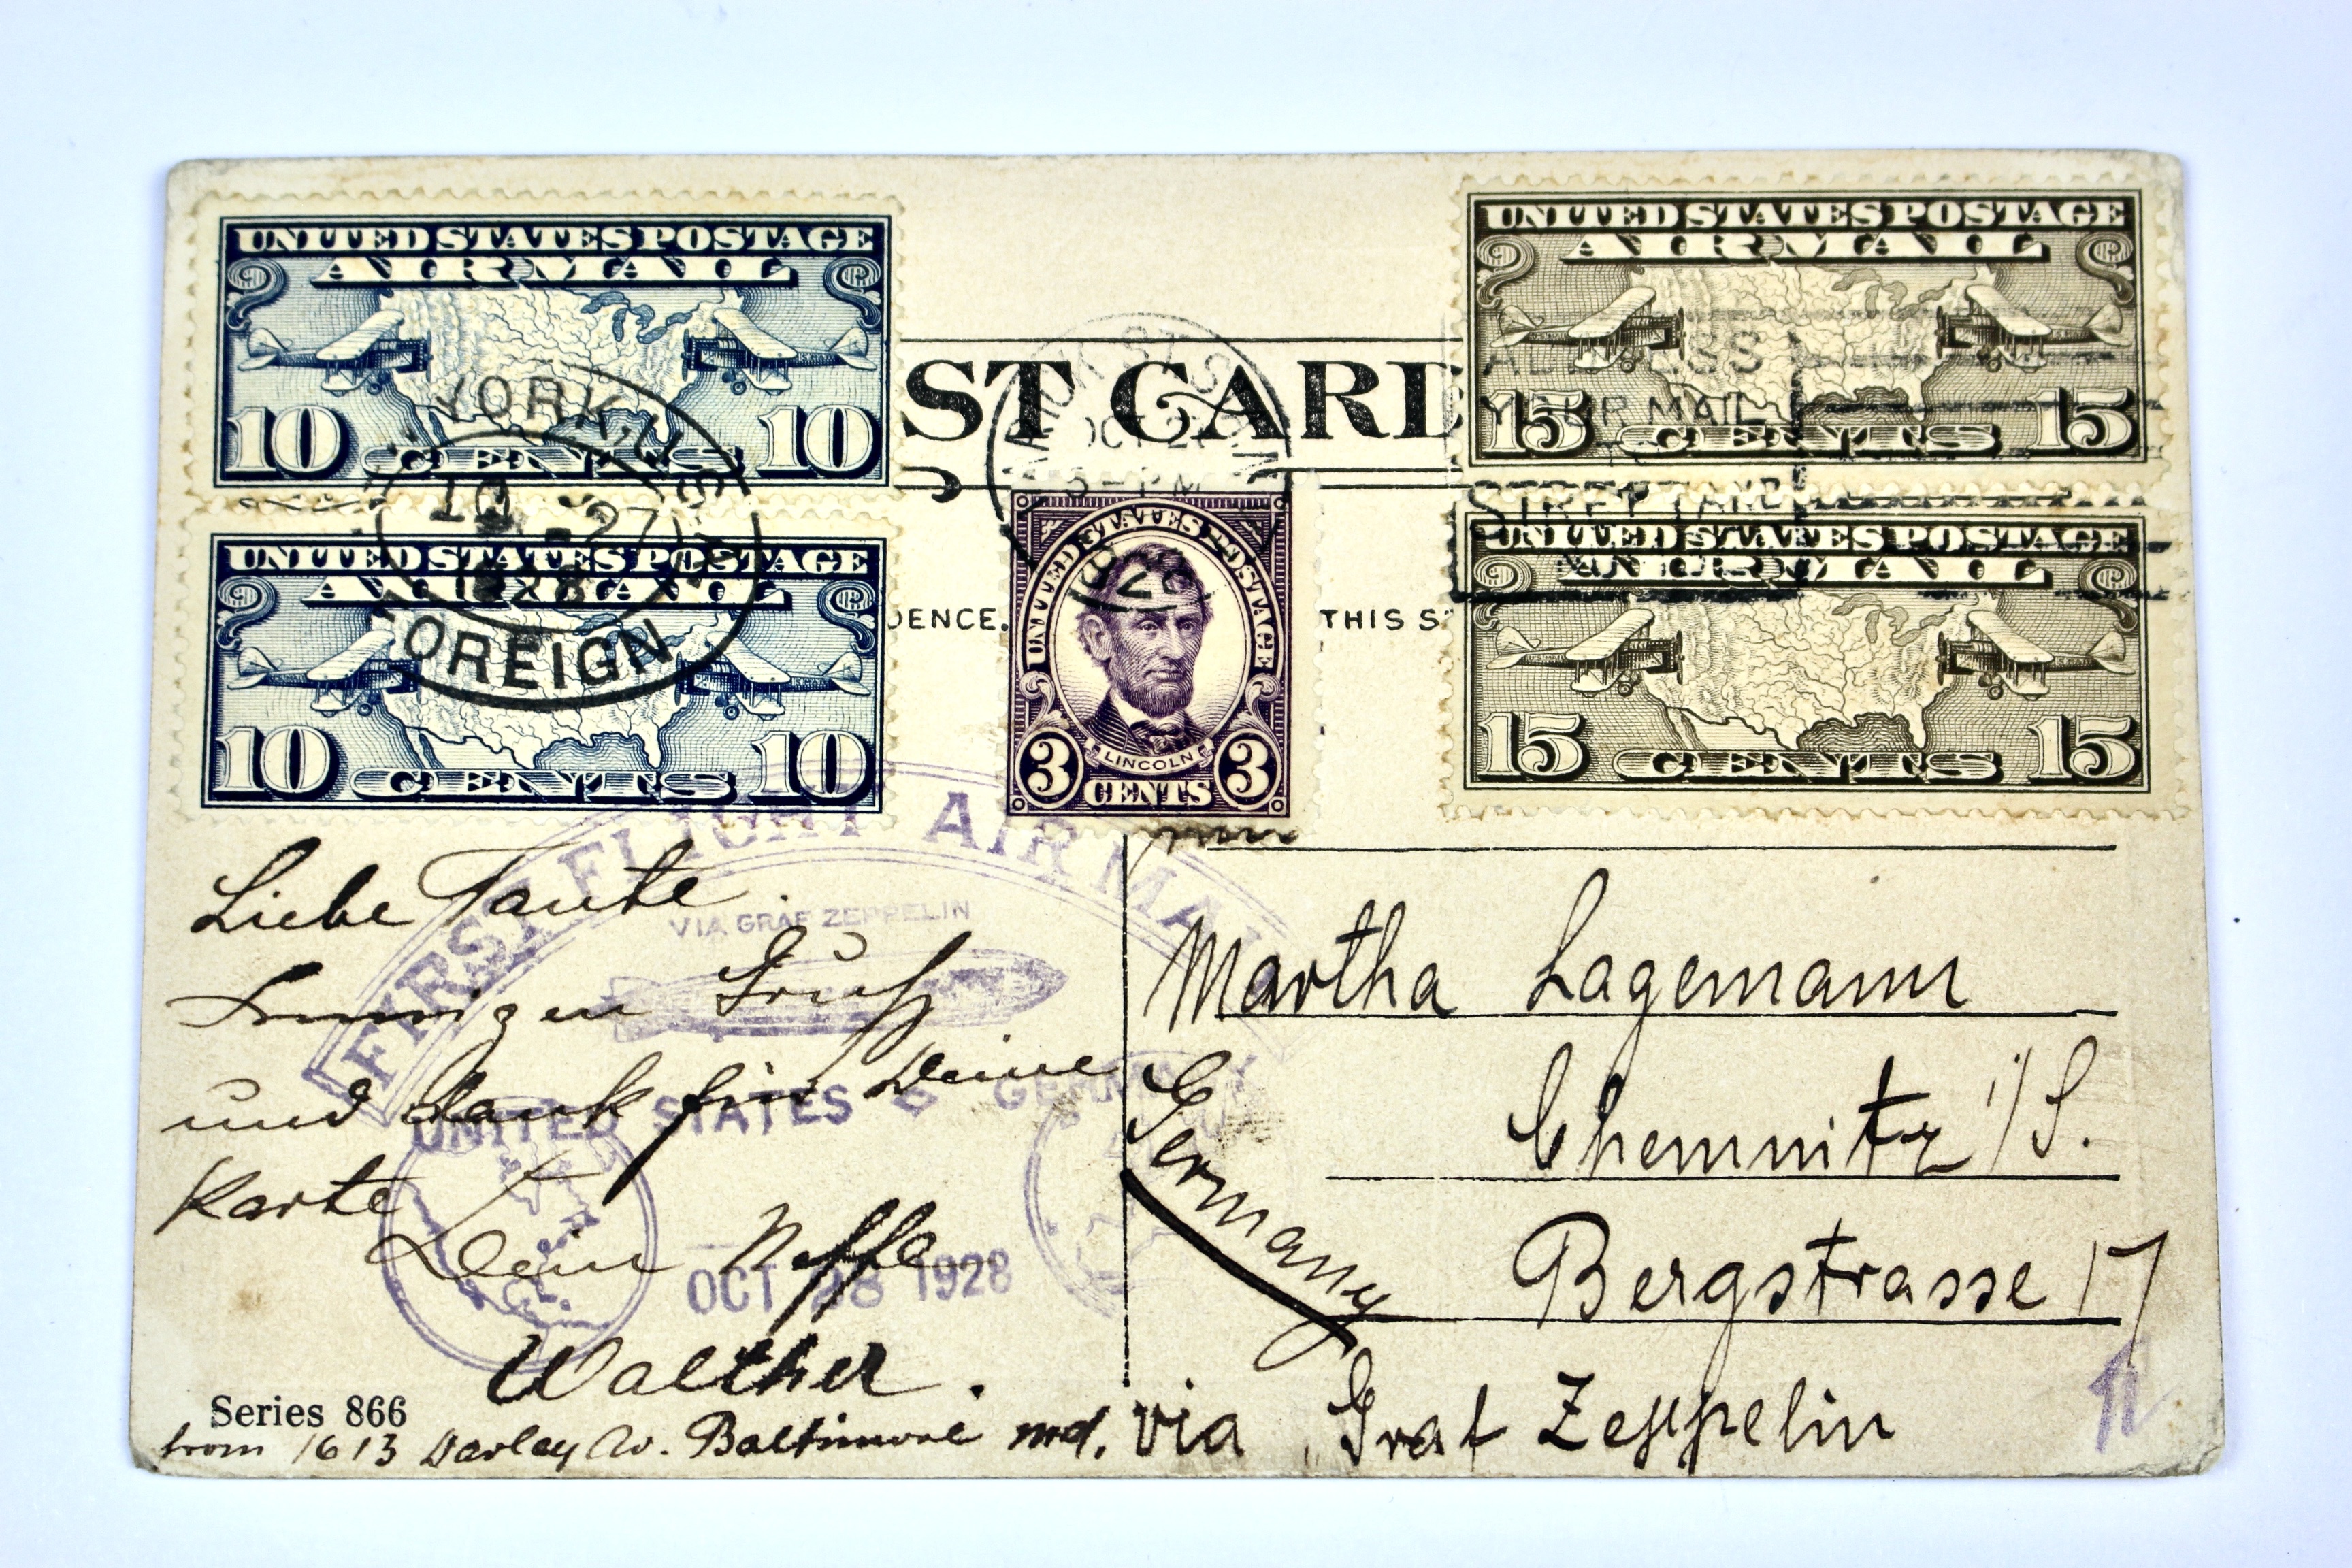 UNITED STATES POSTAGE
AIR MAIL
10 CENTS 10
UNITED STATES POSTAGE
AIR MAIL
10 CENTS 10
YORK, U.S.
10
27
1928
FOREIGN
ST CARD
DENCE.
THIS S
OCT 2
3 - PM
UNITED STATES POSTAGE
LINCOLN
3 CENTS 3
UNITED STATES POSTAGE
AIR MAIL
15 CENTS 15
ADDRESS
YOUR MAIL
TO
STREET AND
NUMBER
UNITED STATES POSTAGE
AIR MAIL
15 CENTS 15
FIRST FLIGHT AIR MAIL
VIA GRAF ZEPPELIN
UNITED STATES GERMANY
OCT 28 1928
Liebe Tante.
Innigen Gruß
und Dank für Deine
Karte
Dein Neffe
Walther.
Series 866
from 1613 Darley Av. Baltimore md.
Martha Lagemann
Chemnitz i/S.
Bergstrasse 17
Germany
via Graf Zeppelin